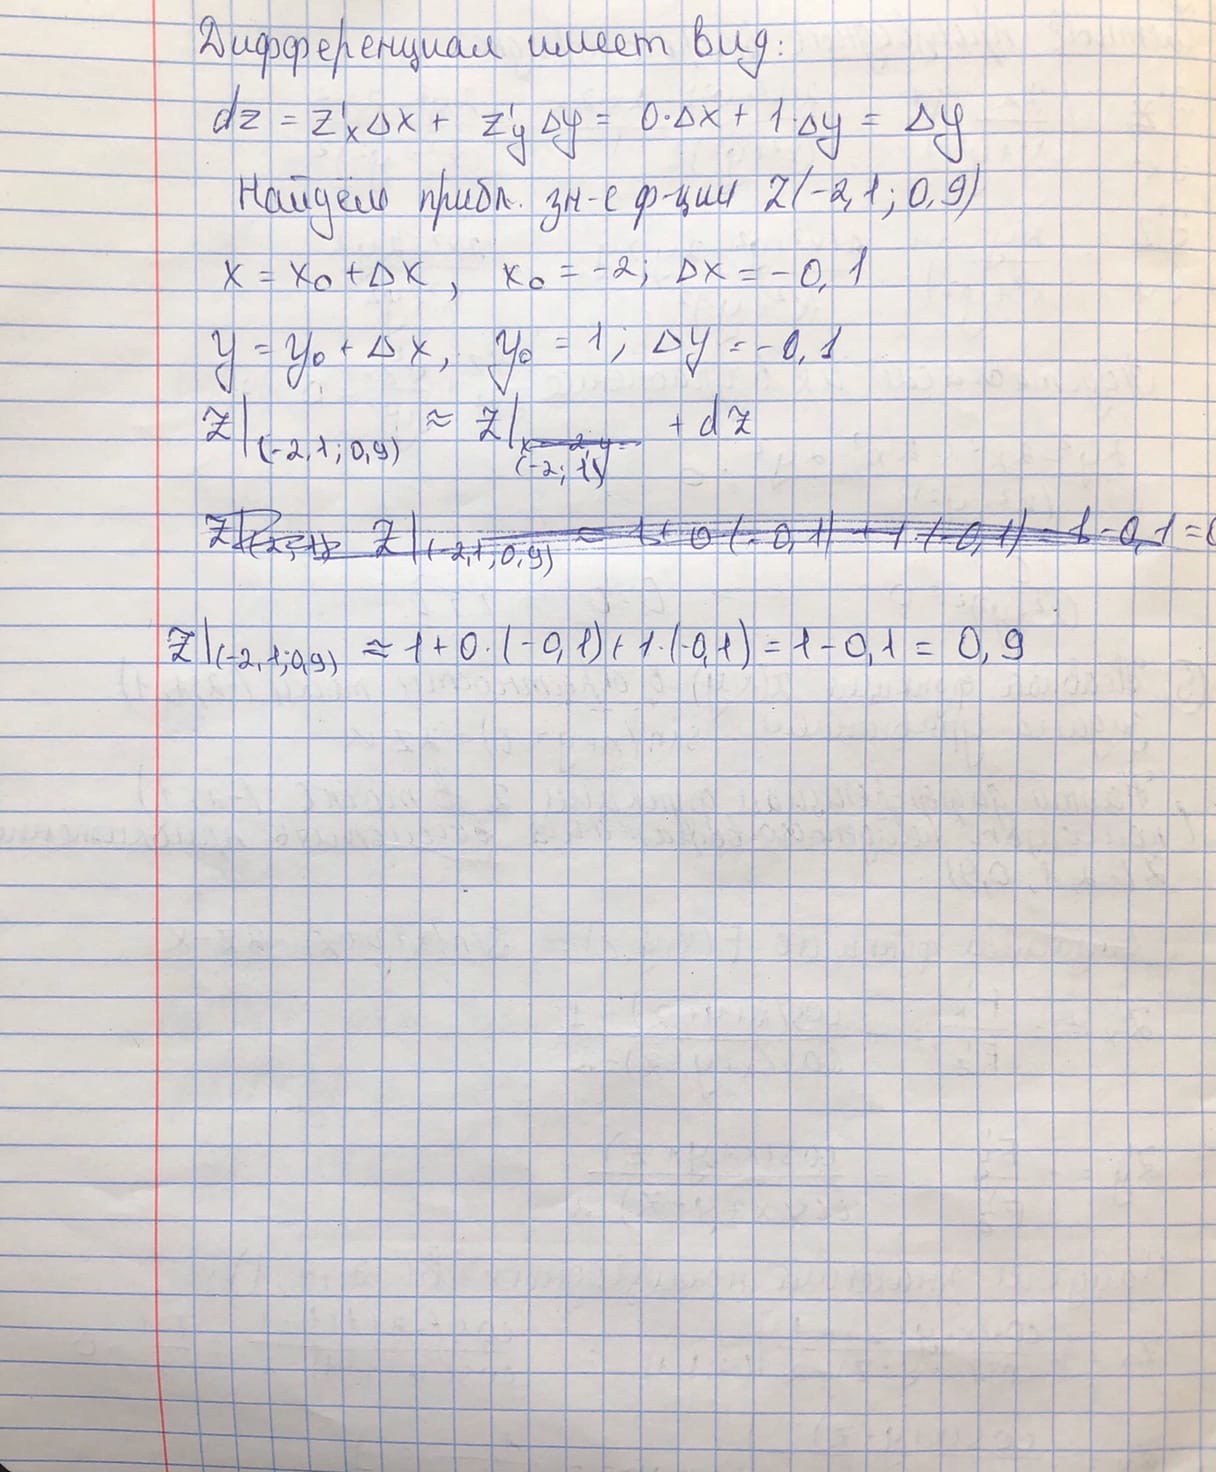 Дифференциал имеет вид:
dz = z'x Δx + z'y Δy = 0·Δx + 1·Δy = Δy
Найдём прибл. зн-е ф-ции z(-2,1; 0,9)
x = x₀ + Δx, x₀ = -2; Δx = -0,1
y = y₀ + Δx, y₀ = 1; Δy = -0,1
z|(-2,1; 0,9) ≈ z|(-2; 1) + dz
z|(-2,1; 0,9) ≈ 1 + 0·(-0,1) + 1·(-0,1) = 1 - 0,1 =
z|(-2,1; 0,9) ≈ 1 + 0·(-0,1) + 1·(-0,1) = 1 - 0,1 = 0,9